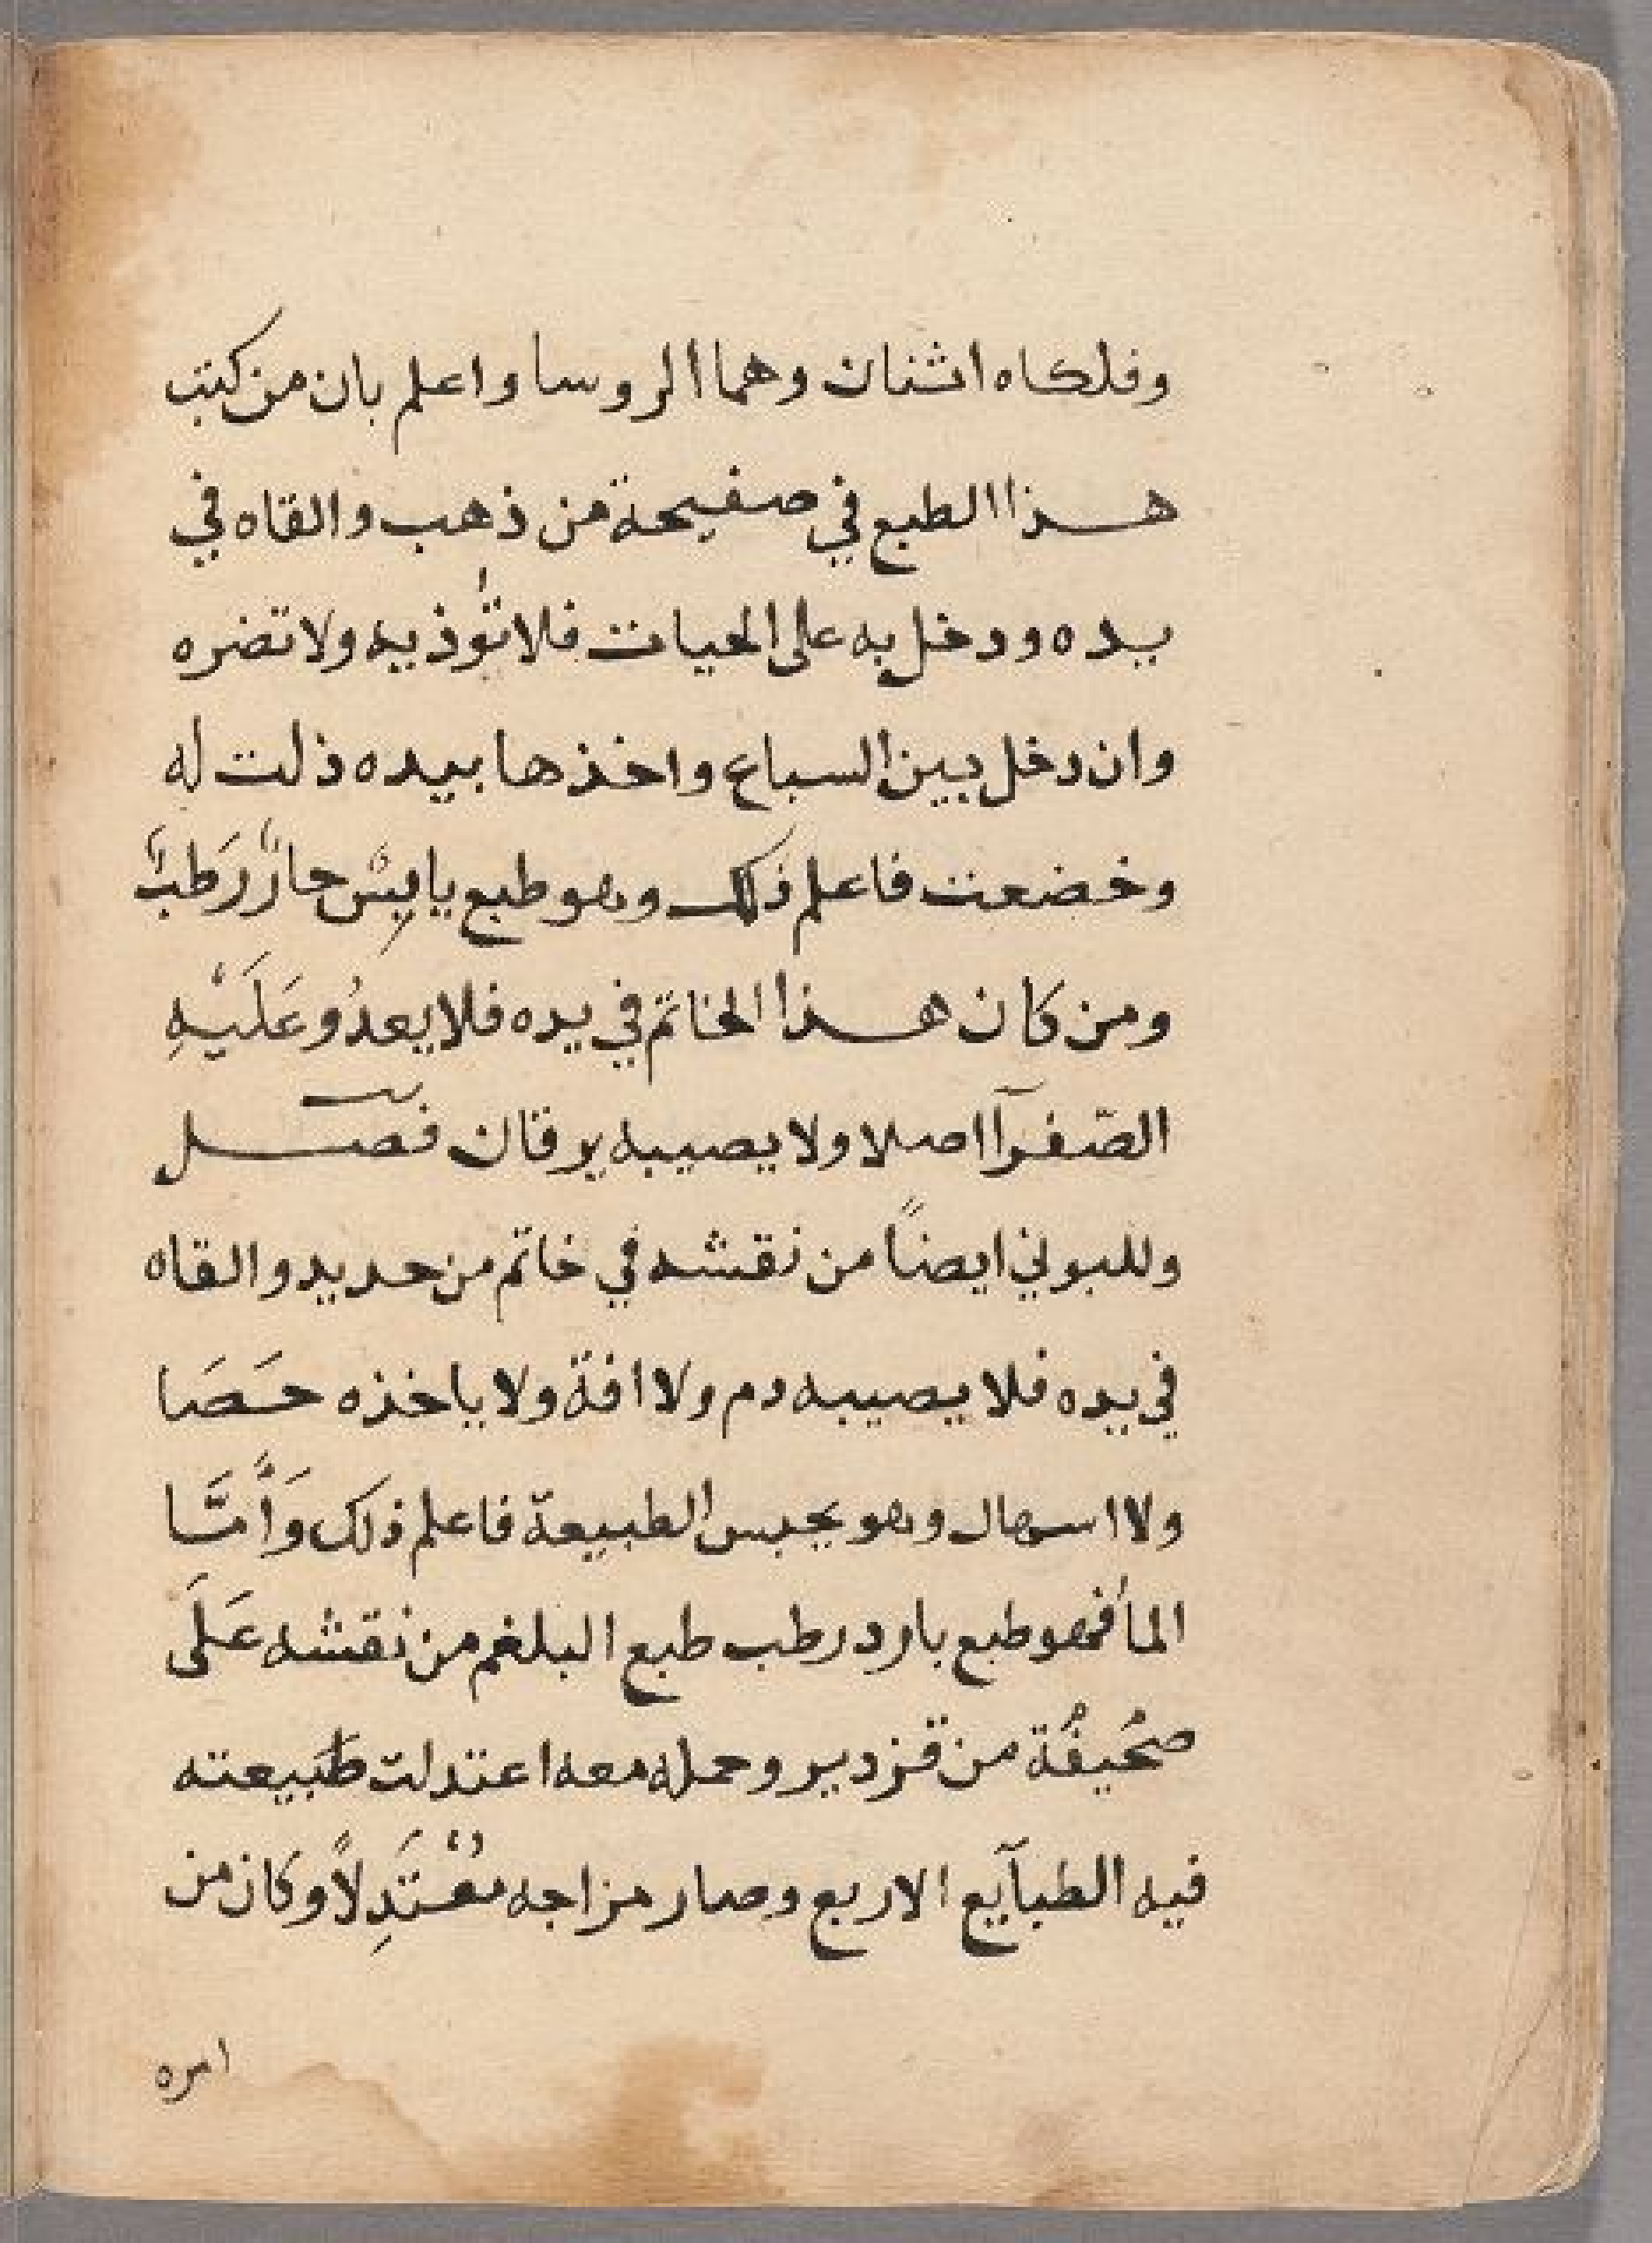 وفلكاه اثنان وهما الروسا واعلم بان من كتب
هذا الطبع في صفيحة من ذهب والقاه في
يده ودخل به على الحيات فلا تُوذيه ولا تضره
وان دخل بين السباع واخذها بيده ذلت له
وخضعت فاعلم ذلك وهو طبع يابسٌ حارٌ رَطبٌ
ومن كان هذا الخاتم في يده فلا يعدُو عَلَيْهِ
الصّفرآ اصلا ولا يصيبه يرقان فصل
وللبوني ايضاً من نقشه في خاتم من حديد والقاه
في يده فلا يصيبه دم ولا افة ولا ياخذه حَصَا
ولا اسهال وهو يحبس الطبيعة فاعلم ذلك وَأَمَّا
المأ فهو طبع بارد رطب طبع البلغم من نقشه عَلَى
صحُيفُة من قزدير وحمله معه اعتدلت طَبيعته
فيه الطبآيع الاربع وصار مزاجه مُعْتَدِلاً وكان من
امره